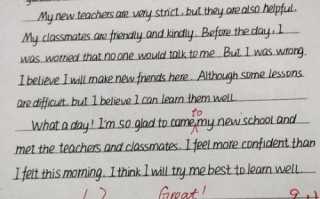 My new teachers are very strict, but they are also helpful.
My classmates are friendly and kindly. Before the day, I
was worried that no one would talk to me. But I was wrong.
I believe I will make new friends here. Although some lessons
are difficult, but I believe I can learn them well.
What a day! I'm so glad to come to my new school and
met the teachers and classmates. I feel more confident than
I felt this morning. I think I will try me best to learn well.
Great!